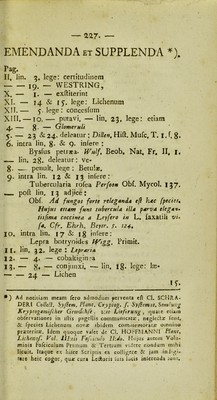 — 227. —
EMENDANDA ET SUPPLENDA *).
Pag.
II. lin. 3. lege: certitudinem
— — 19. — WESTRING,
X. — 1. — exstiterint
XI. — 14 & 15. lege: Lichenum
XII. — 5. lege: concessum
XIII. — 10. — putavi, — lin. 23. lege: etiam
4. — 8. — Glomeruli
5. — 23 & 24. deleatur: Dillen, Hist. Musc. T. 1. f. 8.
6. intra lin. 8. & 9. insere:
Byssus petræa. Wulf, Beob. Nat, Fr. II, 1.
— lin. 28. deleatur: ve-
8. — penult. lege: Betulæ.
9. intra lin. 12 & 13 insere:
Tubercularia rosea Persoon Obf. Mycol. 137.
— post lin. 13 adjice:
Obf. Ad fungos forte releganda est hæc species,
Hujus etiam sunt tubercula illa parva elegan-
tissima coccinea a Leysero in L. saxatili vi-
sa. Cfr. Ehrh. Beytr. 1. 124.
10. intra lin. 17 & 18 insere:
Lepra botryoides Wigg. Primit.
11. lin. 32. lege: Lepraria
12. — 4. — cobaltiginea
13. — 8. — conjunxi, — lin. 18. lege: læ-
— — 24 — Lichen
15.
*) Ad notitiam meam sero admodum perventa est Cl. SCHRA-
DERI Collect. System. Plant. Cryptog. s. Systemat. Samlung
Kryptogamischer Gewächse. 1:te Lieferung, quare etiam
observationes in illis pagellis communicatæ, neglectæ sunt,
& species Lichenum novæ ibidem commemoratæ omnino
prætereæ. Idem quoque valet de Cl. HOFFMANNI Plant.
Lichenof. Vol. III:tii Fasciculo III:tio. Hujus autem Volu-
minis Fasciculum Primum & Tertium videre nondum mihi
licuit. Itaque ex hisce Scriptis ea colligere & jam in lu-